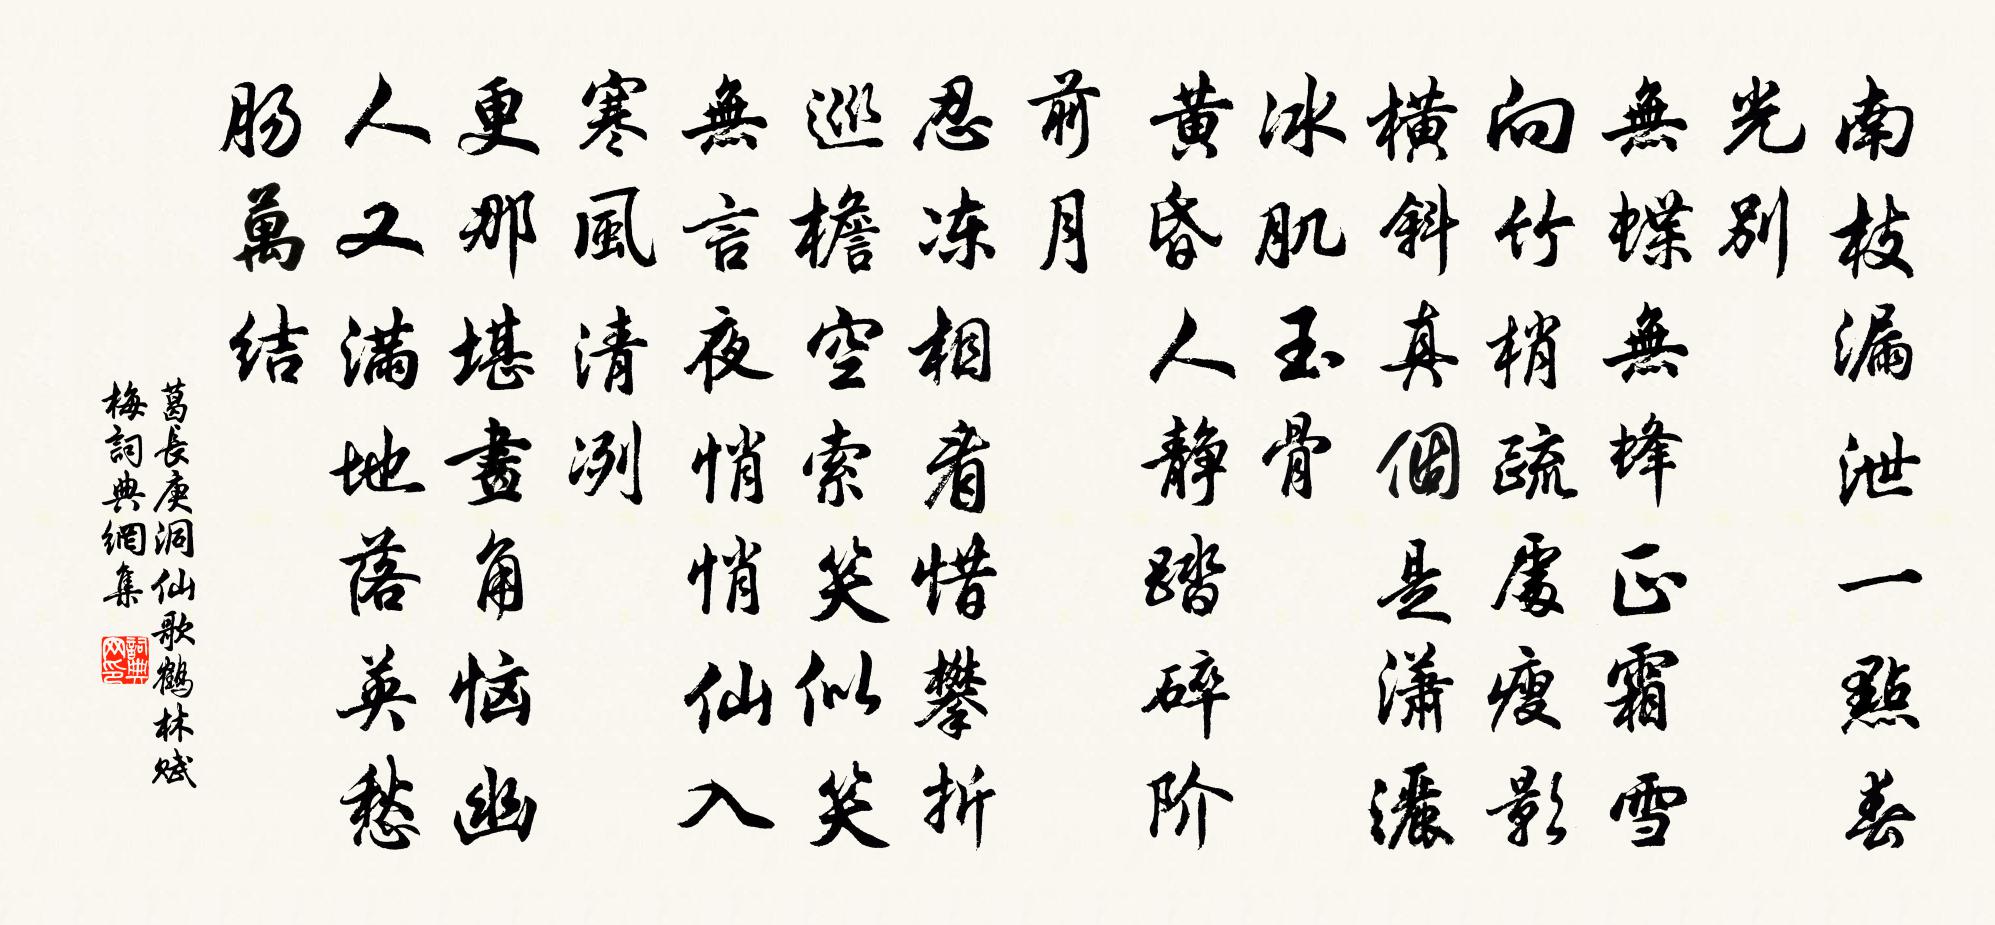 南枝漏泄一點春
光别
無蝶無蜂正霜雪
向竹梢疏處瘦影
横斜真個是瀟灑
冰肌玉骨
黄昏人静踏碎阶
前月
忍冻相看惜攀折
巡檐空索笑似笑
無言夜悄悄仙入
寒風清冽
更那堪畫角恼幽
人又满地落英愁
肠萬结
葛長庚洞仙歌鹤林赋
梅詞典網集
詞典
网印